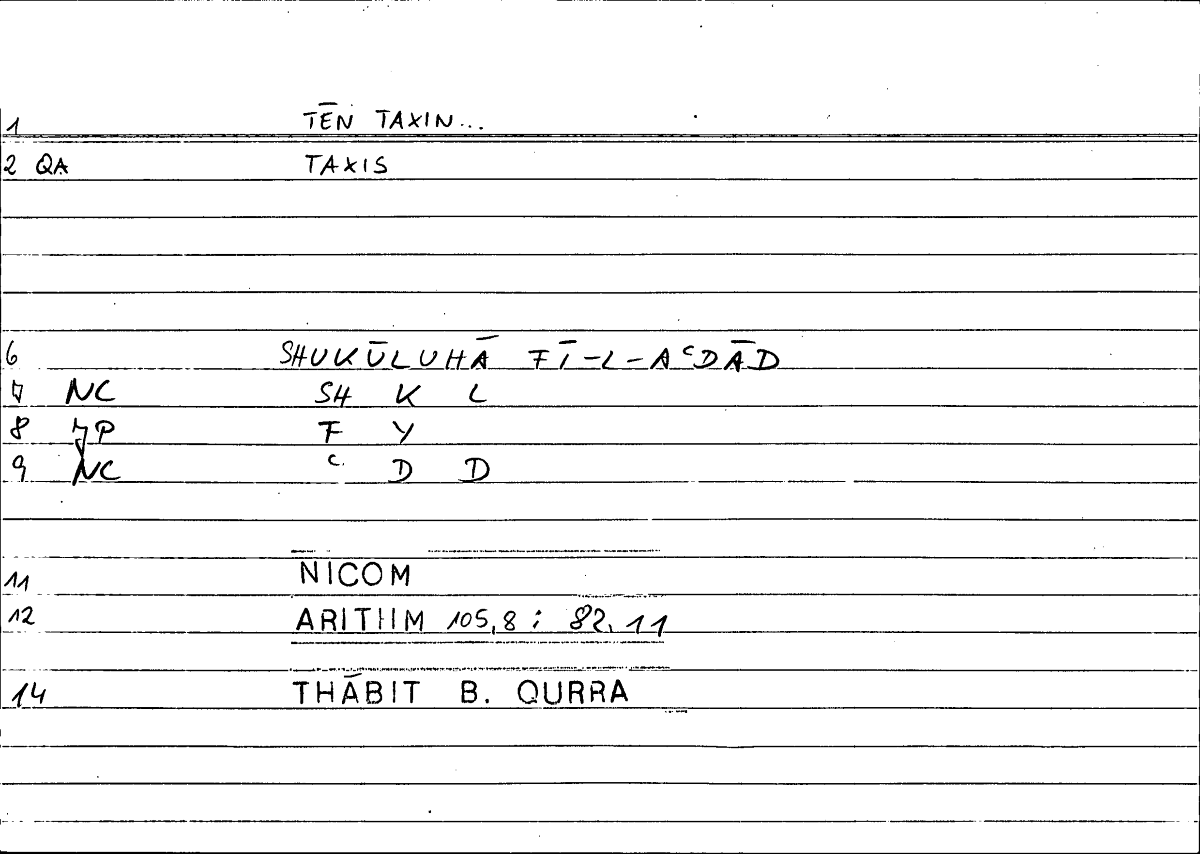 1 TĒN TAXIN...
2 QA TAXIS
6 SHUKŪLUHĀ FĪ-L-AᶜDĀD
7 NC SH K L
8 P F Y
9 NC ᶜ D D
11 NICOM
12 ARITHM 105,8 : 82,11
14 THĀBIT B. QURRA